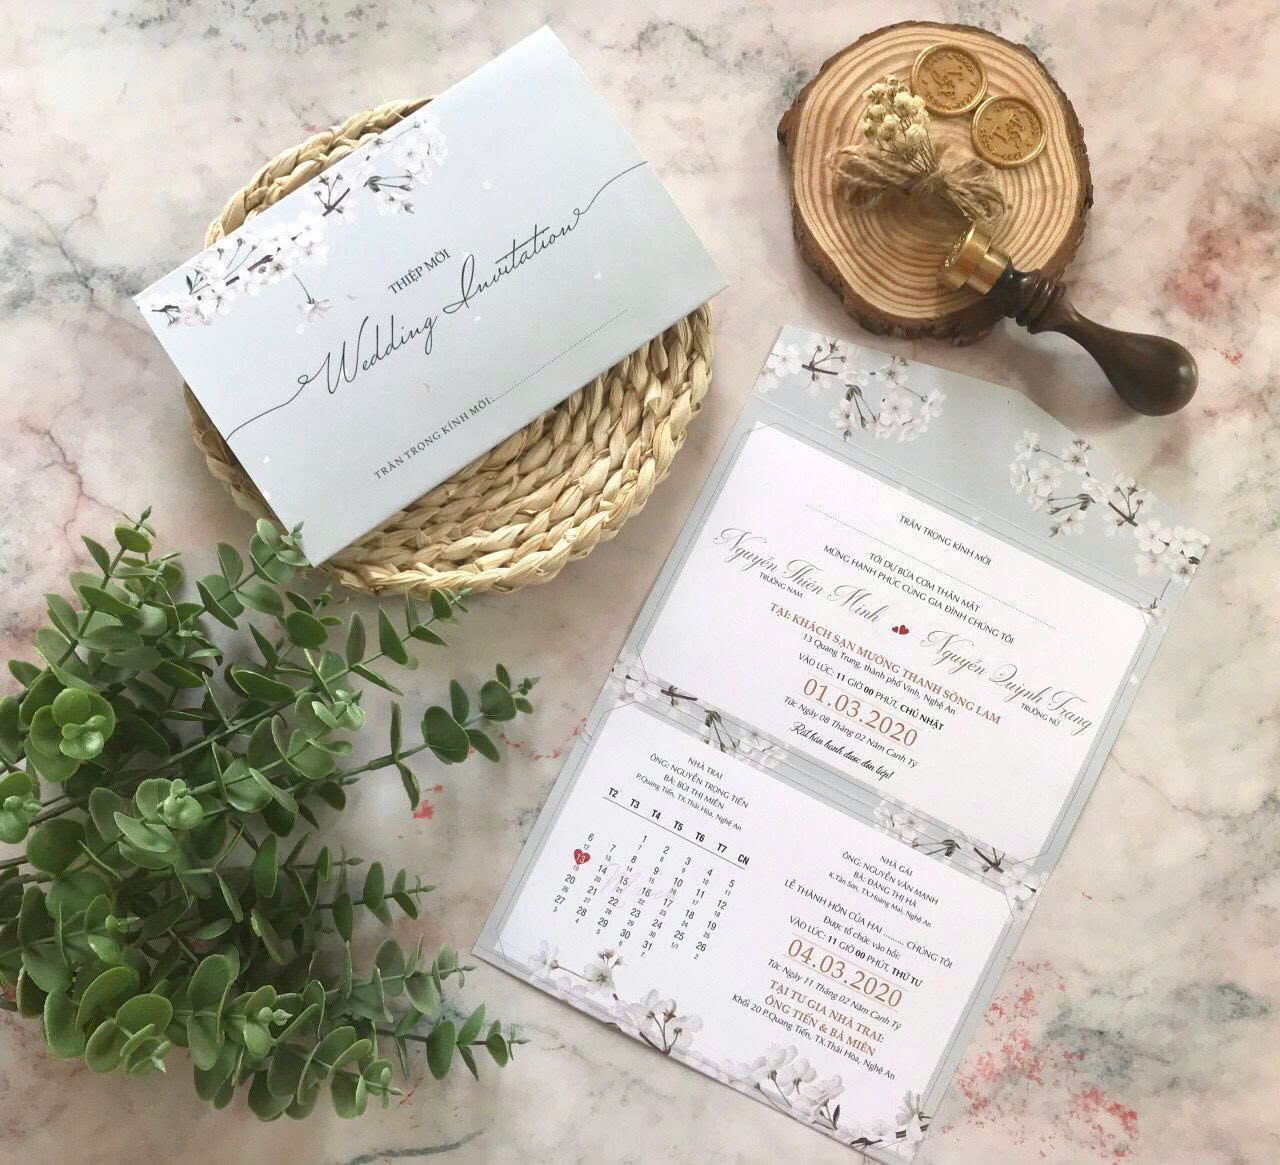 THIỆP MỜI
Wedding Invitation
TRÂN TRỌNG KÍNH MỜI:
TRÂN TRỌNG KÍNH MỜI
TỚI DỰ BỮA CƠM THÂN MẬT
MỪNG HẠNH PHÚC CÙNG GIA ĐÌNH CHÚNG TÔI
Nguyễn Thiên Minh
TRƯỞNG NAM
Nguyễn Quỳnh Trang
TRƯỞNG NỮ
TẠI: KHÁCH SẠN MƯỜNG THANH SÔNG LAM
13 Quang Trung, thành phố Vinh, Nghệ An
VÀO LÚC: 11 GIỜ 00 PHÚT, CHỦ NHẬT
01.03.2020
Tức Ngày 08 Tháng 02 Năm Canh Tý
Rất hân hạnh được đón tiếp!
NHÀ TRAI
ÔNG: NGUYỄN TRỌNG TIẾN
BÀ: BÙI THỊ MIÊN
P.Quang Tiến, TX.Thái Hòa, Nghệ An
T2 T3 T4 T5 T6 T7 CN
1 2 3 4 5
6 7 8 9 10 11 12
13 14 15 16 17 18 19
20 21 22 23 24 25 26
27 28 29 30 31
NHÀ GÁI
ÔNG: NGUYỄN VĂN MẠNH
BÀ: ĐẶNG THỊ HÀ
K.Tân Sơn, TX.Hoàng Mai, Nghệ An
LỄ THÀNH HÔN CỦA HAI ......... CHÚNG TÔI
Được tổ chức vào hồi:
VÀO LÚC: 11 GIỜ 00 PHÚT, THỨ TƯ
04.03.2020
Tức Ngày 11 Tháng 02 Năm Canh Tý
TẠI TƯ GIA NHÀ TRAI:
ÔNG TIẾN & BÀ MIÊN
Khối 20 P.Quang Tiến, TX.Thái Hòa, Nghệ An